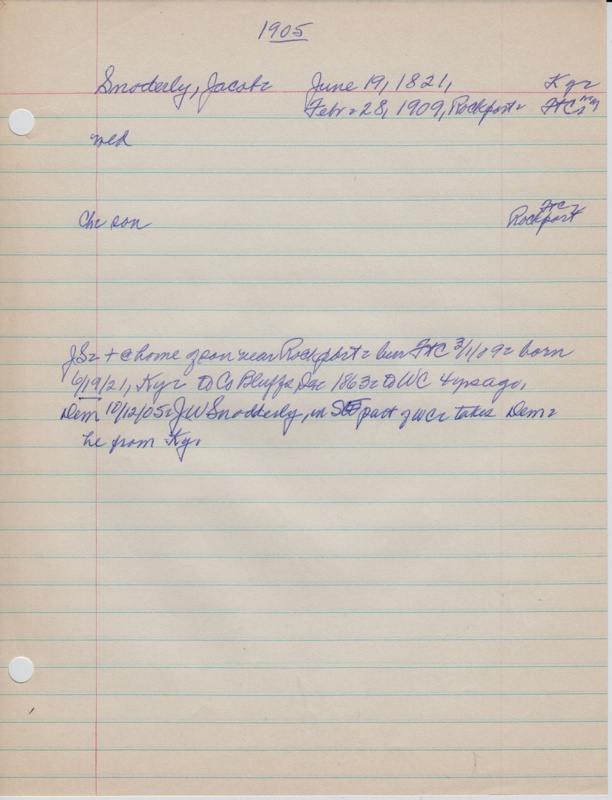 1905
Snoderly, Jacob June 19, 1821, Ky
Feb 28, 1909, Rockport FtC
Med
Ch son FtC
Rockport
JS + @ home of son near Rockport bur FtC 3/1/09 born
6/19/21, Ky to Co Bluffs Dec 1863 to WC 4 yrs ago,
Dem 10/12/05 JW Snodderly, in SE part of WC takes Dem
he from Ky.